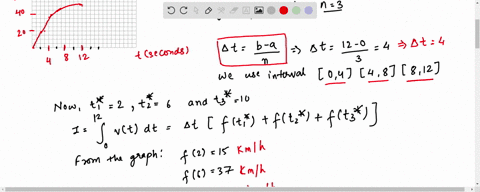 n = 3
40
20
4 8 12
t (seconds)
Δt = b-a/n ⇒ Δt = 12-0/3 = 4 ⇒ Δt = 4
We use interval [0,4] [4,8] [8,12]
Now, t₁* = 2, t₂* = 6 and t₃* = 10
I = ∫₀¹² v(t) dt = Δt [ f(t₁*) + f(t₂*) + f(t₃*) ]
From the graph: f(2) = 15 Km/h
f(6) = 37 Km/h